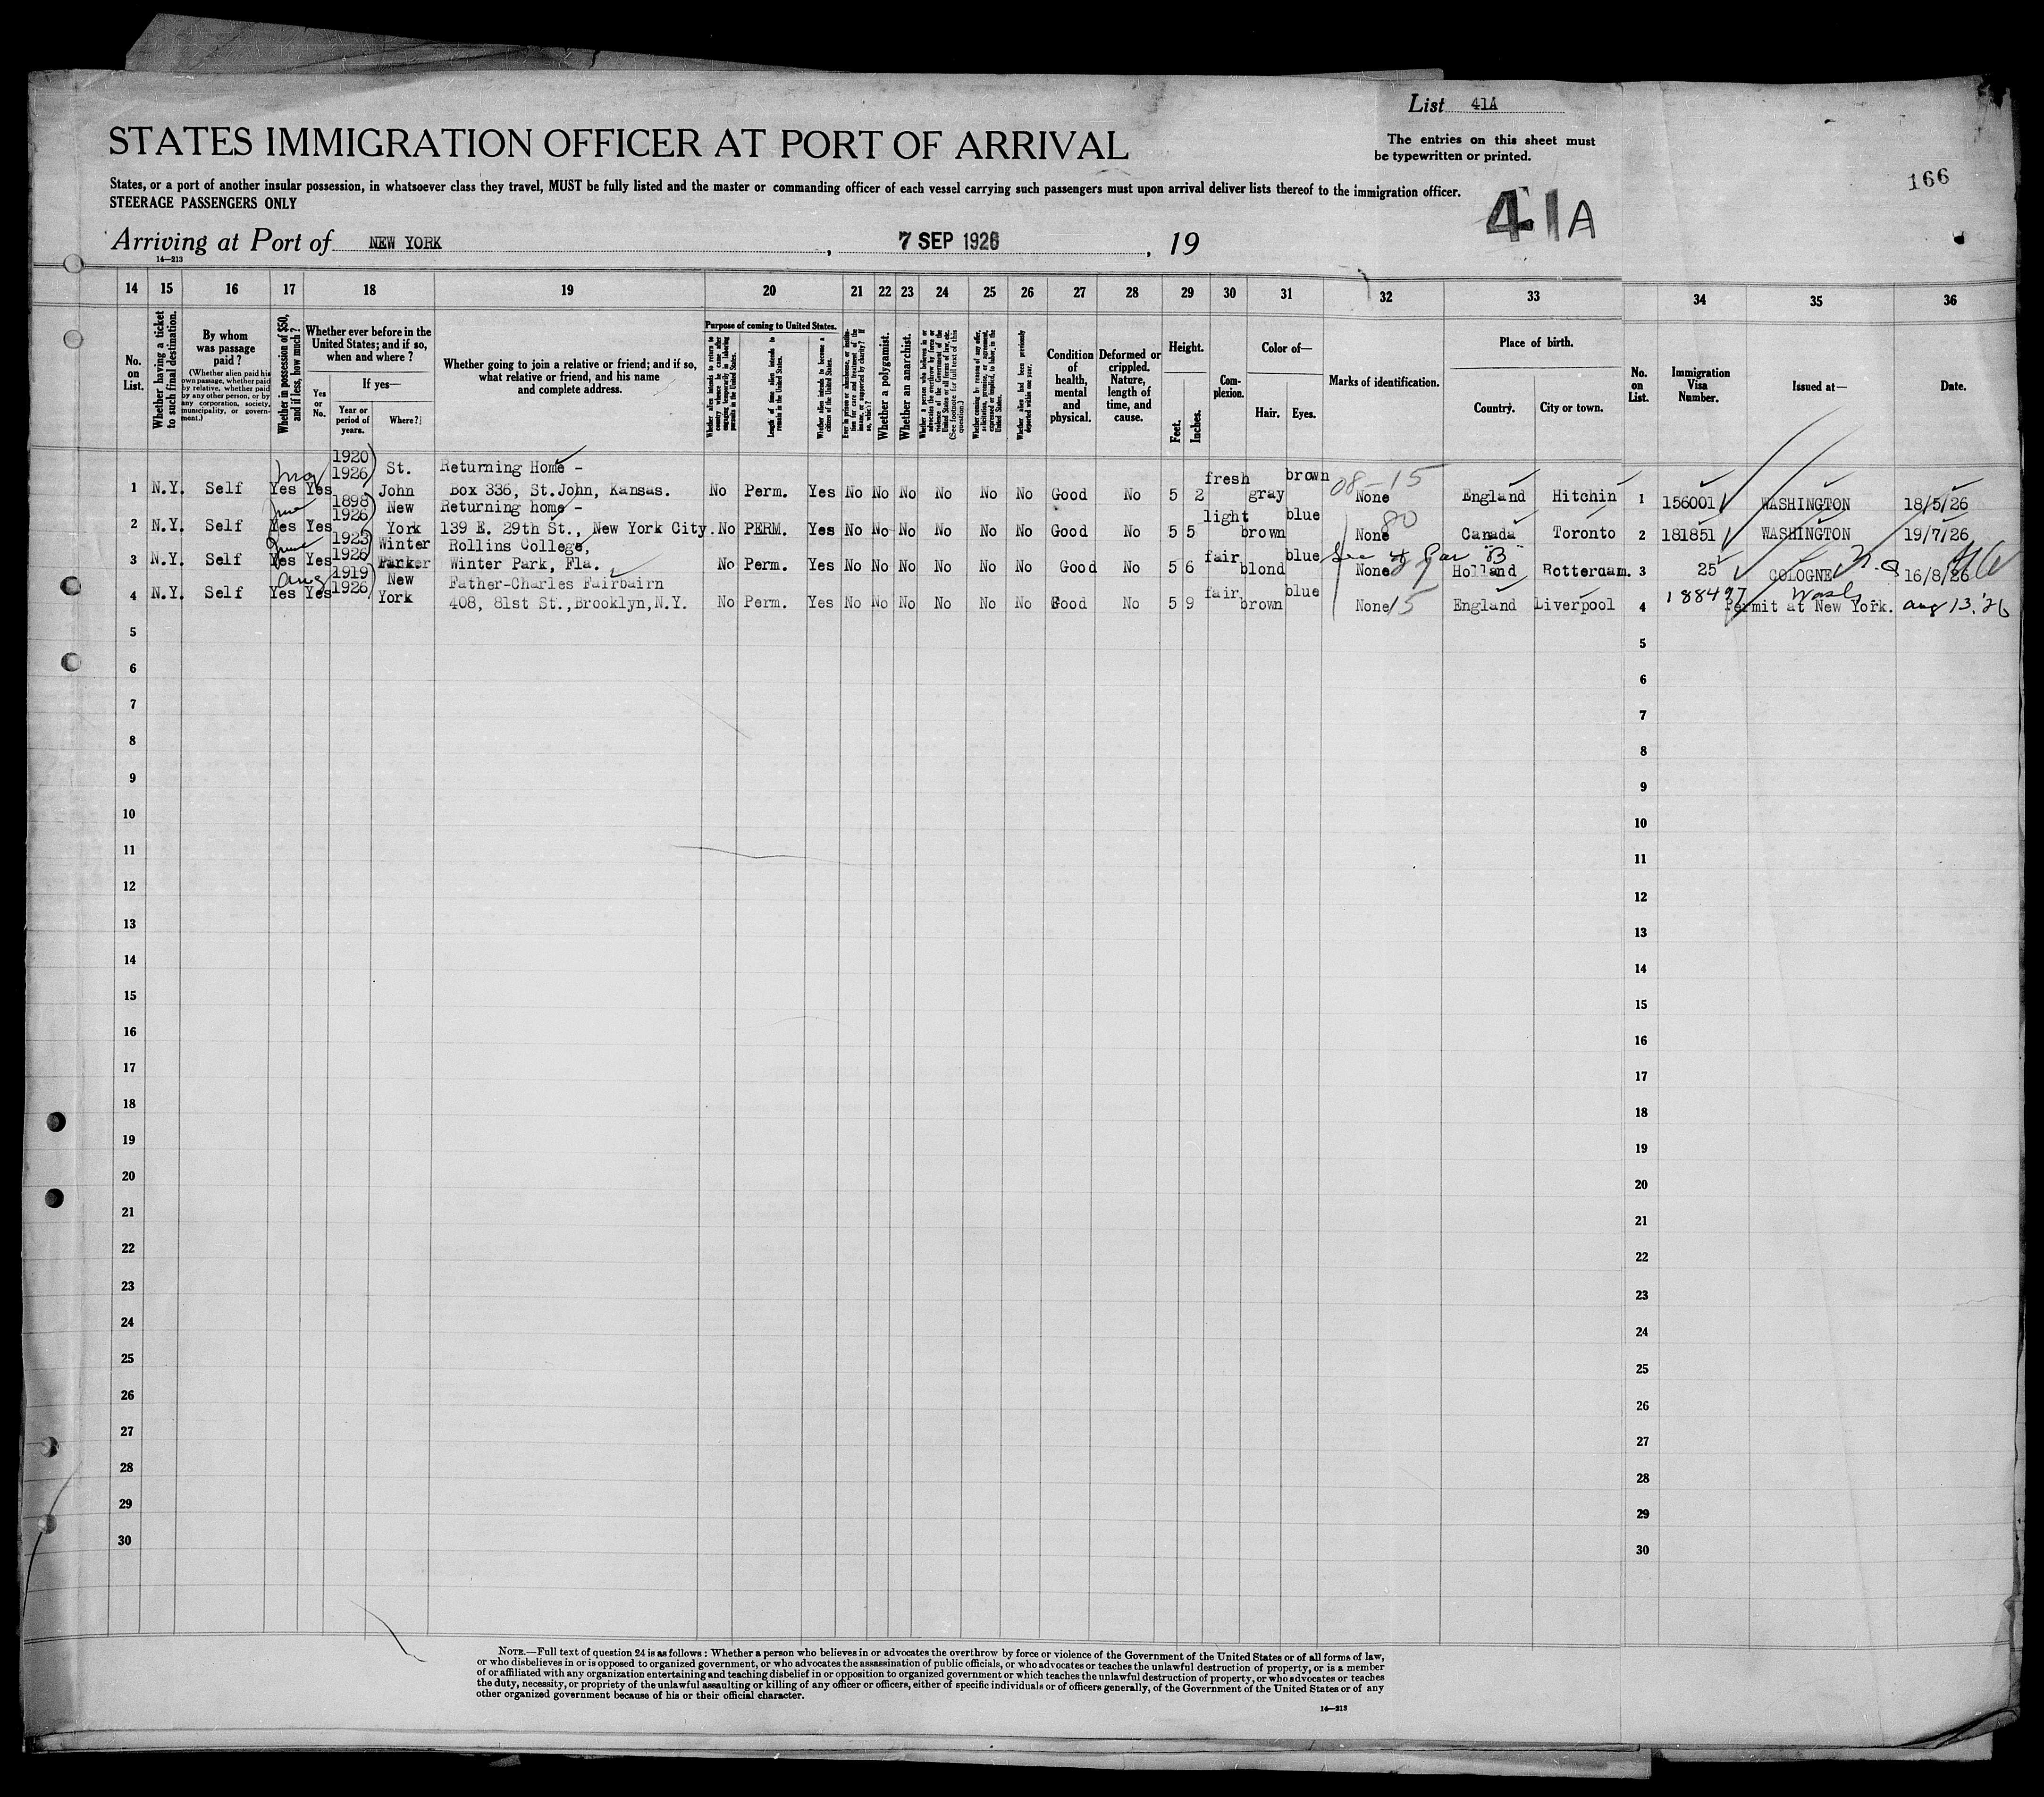 List 41A
The entries on this sheet must
be typewritten or printed.
STATES IMMIGRATION OFFICER AT PORT OF ARRIVAL
166
States, or a port of another insular possession, in whatsoever class they travel, MUST be fully listed and the master or commanding officer of each vessel carrying such passengers must upon arrival deliver lists thereof to the immigration officer.
STEERAGE PASSENGERS ONLY
41A
Arriving at Port of NEW YORK, 7 SEP 1926, 19
14—213
14 15 16 17 18 19 20 21 22 23 24 25 26 27 28 29 30 31 32 33 34 35 36
No. on List.
Whether having a ticket to such final destination.
By whom was passage paid?
(Whether alien paid his own passage, whether paid by relative, whether paid by any other person, or by any corporation, society, municipality, or government.)
Whether in possession of $50, and if less, how much?
Whether ever before in the United States; and if so, when and where?
Yes or No.
If yes—
Year or period of years.
Where?
Whether going to join a relative or friend; and if so, what relative or friend, and his name and complete address.
Purpose of coming to United States.
Whether alien intends to return to country whence he came after engaging temporarily in laboring pursuits in the United States.
Length of time alien intends to remain in the United States.
Whether alien intends to become a citizen of the United States.
Ever in prison or almshouse, or institution for care and treatment of the insane, or supported by charity? If so, which?
Whether a polygamist.
Whether an anarchist.
Whether a person who believes in or advocates the overthrow by force or violence of the Government of the United States or all forms of law, etc. (See footnote for full text of this question.)
Whether coming by reason of any offer, solicitation, promise, or agreement, expressed or implied, to labor, in the United States.
Whether alien had been previously deported within one year.
Condition of health, mental and physical.
Deformed or crippled. Nature, length of time, and cause.
Height.
Feet. Inches.
Complexion.
Color of—
Hair. Eyes.
Marks of identification.
Place of birth.
Country. City or town.
No. on List.
Immigration Visa Number.
Issued at—
Date.
1 N.Y. Self Yes Yes 1920 1926) St. John Returning Home - Box 336, St.John, Kansas. No Perm. Yes No No No No No No Good No 5 2 fresh gray brown 08-15 None England Hitchin 1 156001 WASHINGTON 18/5/26
2 N.Y. Self June Yes Yes 1898 1926) New York Returning home - 139 E. 29th St., New York City. No PERM. Yes No No No No No No Good No 5 5 light brown blue 80 None Canada Toronto 2 181851 WASHINGTON 19/7/26
3 N.Y. Self June Yes Yes 1923 1926) Winter Parker Rollins College, Winter Park, Fla. No Perm. Yes No No No No No No Good No 5 6 fair blond blue None Holland Rotterdam. 3 25 COLOGNE 16/8/26
4 N.Y. Self Aug Yes Yes 1919 1926) New York Father-Charles Fairbairn 408, 81st St.,Brooklyn,N.Y. No Perm. Yes No No No No No No Good No 5 9 fair brown blue None 15 England Liverpool 4 188497 Wash. Permit at New York. Aug 13.'26
5 5
6 6
7 7
8 8
9 9
10 10
11 11
12 12
13 13
14 14
15 15
16 16
17 17
18 18
19 19
20 20
21 21
22 22
23 23
24 24
25 25
26 26
27 27
28 28
29 29
30 30
NOTE.—Full text of question 24 is as follows: Whether a person who believes in or advocates the overthrow by force or violence of the Government of the United States or of all forms of law,
or who disbelieves in or is opposed to organized government, or who advocates the assassination of public officials, or who advocates or teaches the unlawful destruction of property, or is a member
of or affiliated with any organization entertaining and teaching disbelief in or opposition to organized government or which teaches the unlawful destruction of property, or who advocates or teaches
the duty, necessity, or propriety of the unlawful assaulting or killing of any officer or officers, either of specific individuals or of officers generally, of the Government of the United States or of any
other organized government because of his or their official character.
14—213